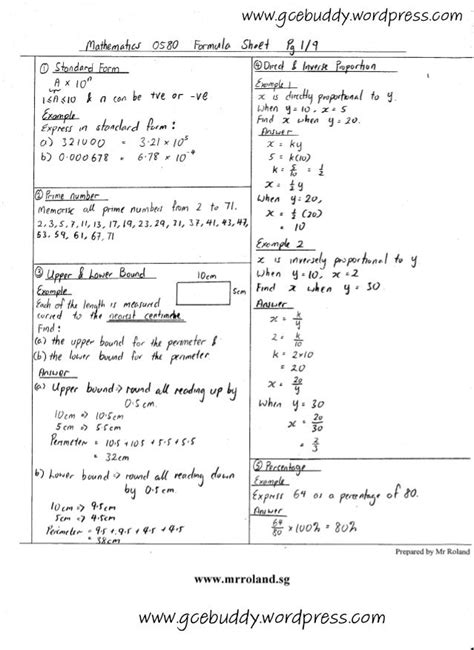 www.gcebuddy.wordpress.com
Mathematics 0580 Formula Sheet Pg 1/9
① Standard Form
A × 10ⁿ
1≤A≤10 & n can be +ve or -ve
Example
Express in standard form:
a) 321000 = 3.21 × 10⁵
b) 0.000678 = 6.78 × 10⁻⁴
② Prime number
Memorise all prime numbers from 2 to 71.
2, 3, 5, 7, 11, 13, 17, 19, 23, 29, 31, 37, 41, 43, 47,
53, 59, 61, 67, 71
③ Upper & Lower Bound
10cm
5cm
Example
Each of the length is measured
to the nearest centimetre
Find:
(a) the upper bound for the perimeter &
(b) the lower bound for the perimeter
Answer
(a) Upper bound → round all reading up by
0.5cm.
10cm → 10.5cm
5cm → 5.5cm
Perimeter = 10.5 + 10.5 + 5.5 + 5.5
= 32cm
b) Lower bound → round all reading down
by 0.5cm.
10cm → 9.5cm
5cm → 4.5cm
Perimeter = 9.5 + 9.5 + 4.5 + 4.5
= 38cm
④ Direct & Inverse Proportion
Example 1
x is directly proportional to y.
When y = 10, x = 5
Find x when y = 20.
Answer
x = ky
5 = k(10)
k = 5/10 = 1/2
x = 1/2 y
When y = 20,
x = 1/2 (20)
= 10
Example 2
x is inversely proportional to y
When y = 10, x = 2
Find x when y = 30
Answer
x = k/y
2 = k/10
k = 2×10
= 20
x = 20/y
When y = 30
x = 20/30
= 2/3
⑤ Percentage
Example
Express 64 as a percentage of 80.
Answer
64/80 × 100% = 80%
Prepared by Mr Roland
www.mrroland.sg
www.gcebuddy.wordpress.com